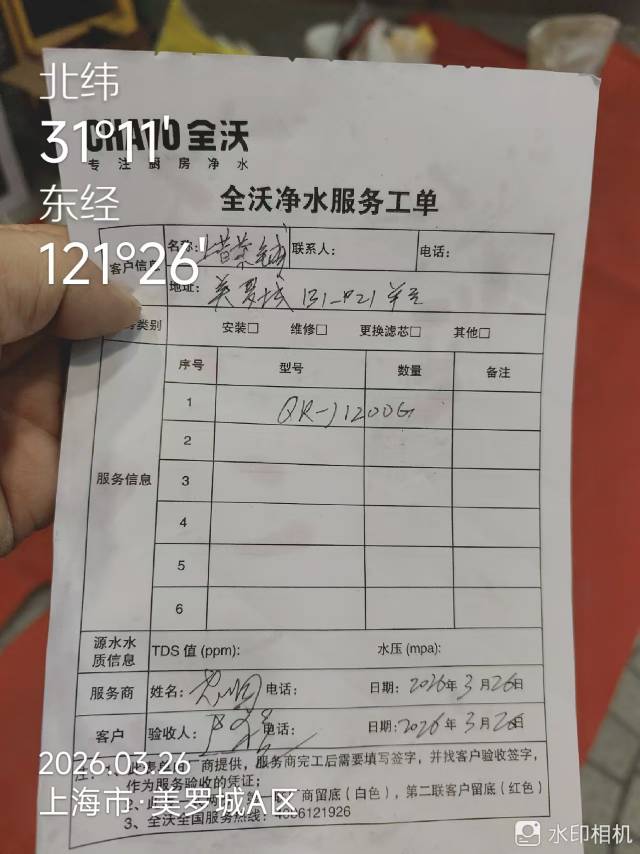 北纬
31°11'
东经
121°26'
CHAVO 全沃
专注厨房净水
全沃净水服务工单
客户信息 名称: 联系人: 电话:
地址: 美罗城 131-P21单元
类别 安装□ 维修□ 更换滤芯□ 其他□
服务信息
序号 型号 数量 备注
1 QR-J1200G
2
3
4
5
6
源水水质信息 TDS 值 (ppm): 水压 (mpa):
服务商 姓名: 电话: 日期: 2026年3月26日
客户 验收人: 电话: 日期: 2026年3月26日
注: 1、 商提供，服务商完工后需要填写签字，并找客户验收签字，
作为服务验收的凭证;
2、此 商留底（白色），第二联客户留底（红色）
3、全沃全国服务热线: 4006121926
2026.03.26
上海市·美罗城A区
水印相机